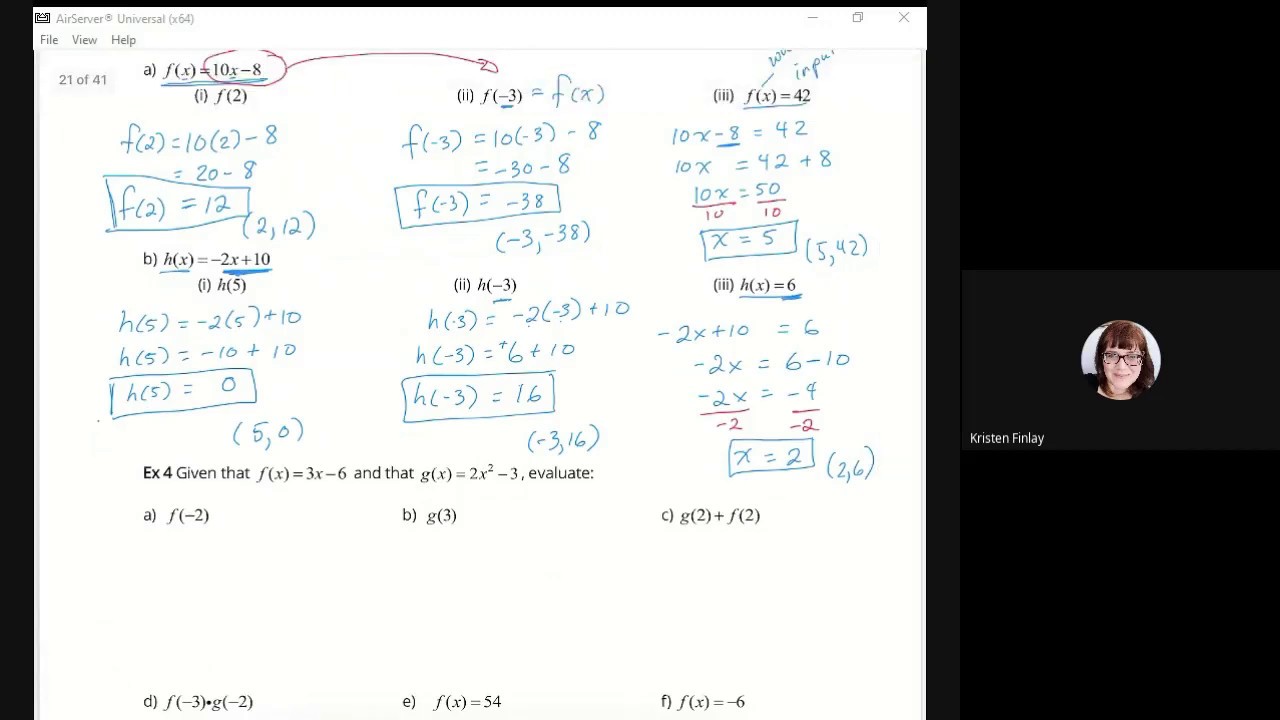 AirServer® Universal (x64)
File View Help
21 of 41
a) f(x) = 10x − 8
input
(i) f(2) (ii) f(−3) = f(x) (iii) f(x) = 42
f(2) = 10(2) − 8 f(-3) = 10(-3) − 8 10x − 8 = 42
= 20 − 8 = −30 − 8 10x = 42 + 8
f(2) = 12 f(-3) = −38 10x = 50
10 10
(2, 12) (−3, −38) x = 5 (5, 42)
b) h(x) = −2x + 10
(i) h(5) (ii) h(−3) (iii) h(x) = 6
h(5) = −2(5) + 10 h(-3) = −2(-3) + 10 −2x + 10 = 6
h(5) = −10 + 10 h(-3) = +6 + 10 −2x = 6 − 10
h(5) = 0 h(-3) = 16 −2x = −4
−2 −2
(5, 0) (−3, 16) x = 2 (2, 6)
Kristen Finlay
Ex 4 Given that f(x) = 3x − 6 and that g(x) = 2x² − 3, evaluate:
a) f(−2) b) g(3) c) g(2) + f(2)
d) f(−3)•g(−2) e) f(x) = 54 f) f(x) = −6